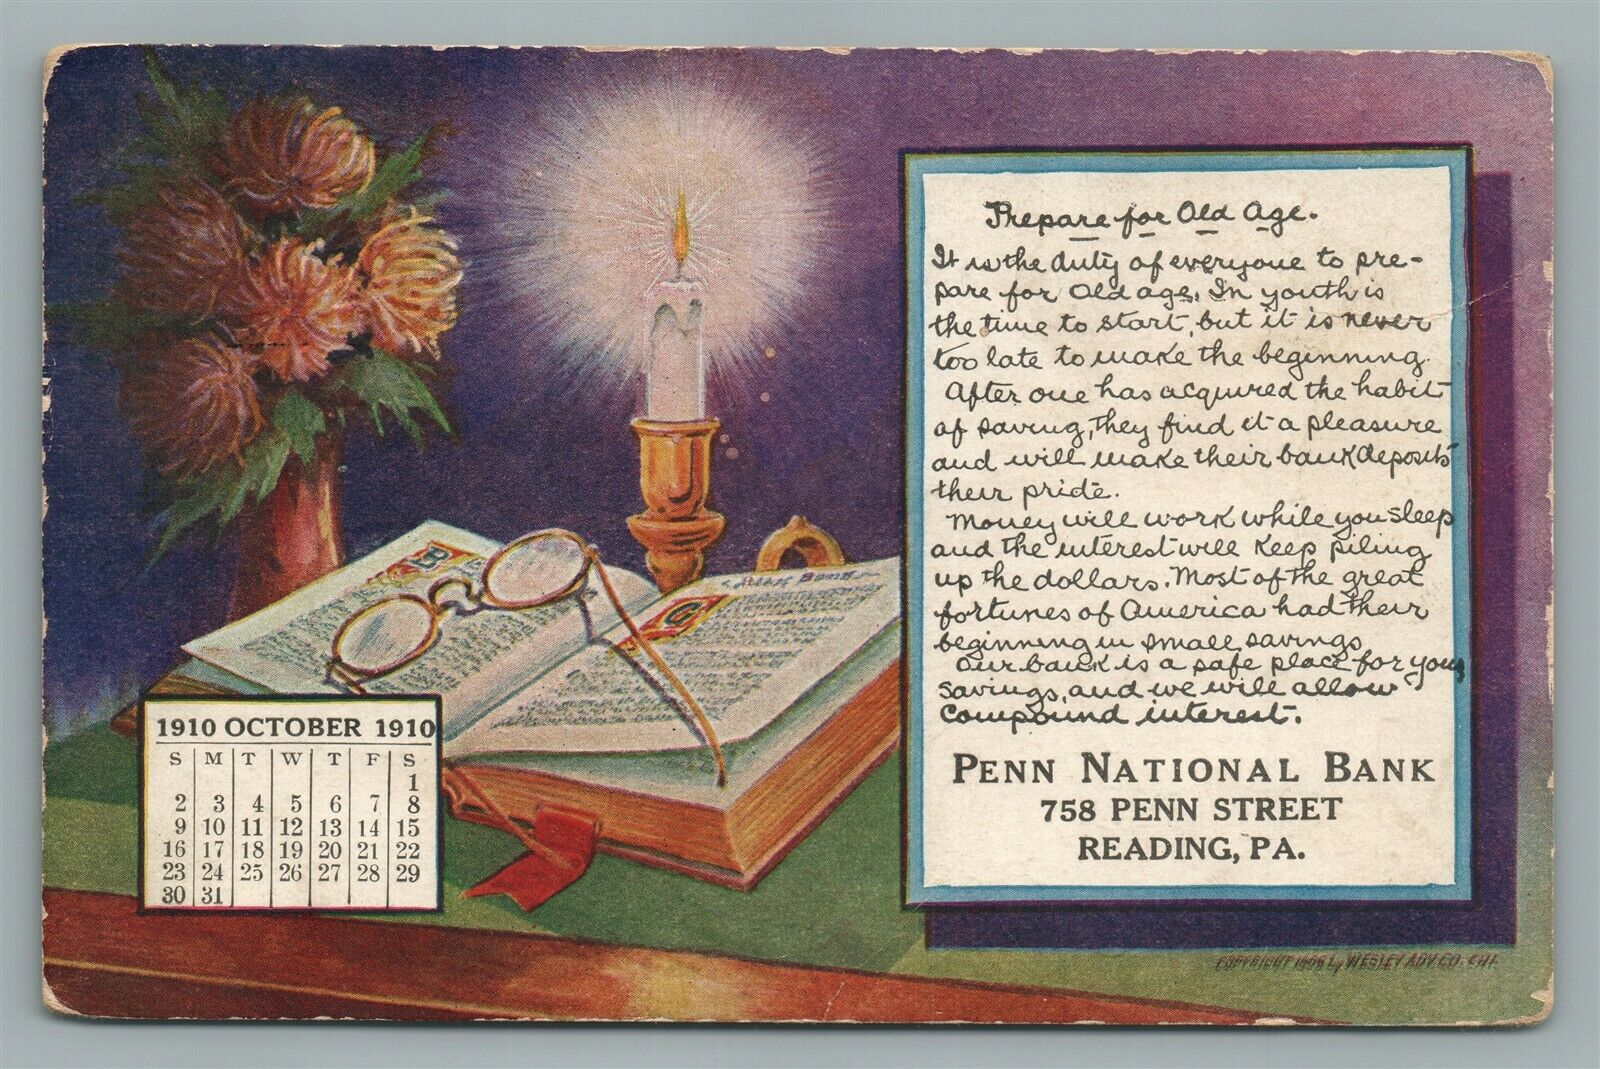 Prepare for Old Age.
It is the duty of everyone to pre-
pare for Old age. In youth is
the time to start, but it is never
too late to make the beginning.
After one has acquired the habit
of saving, they find it a pleasure
and will make their bank deposits
their pride.
Money will work while you sleep
and the interest will keep piling
up the dollars. Most of the great
fortunes of America had their
beginning in small savings
Our bank is a safe place for your
savings, and we will allow
compound interest.
PENN NATIONAL BANK
758 PENN STREET
READING, PA.
1910 OCTOBER 1910
S M T W T F S
1
2 3 4 5 6 7 8
9 10 11 12 13 14 15
16 17 18 19 20 21 22
23 24 25 26 27 28 29
30 31
COPYRIGHT by WESLEY ADV. CO. CHI.